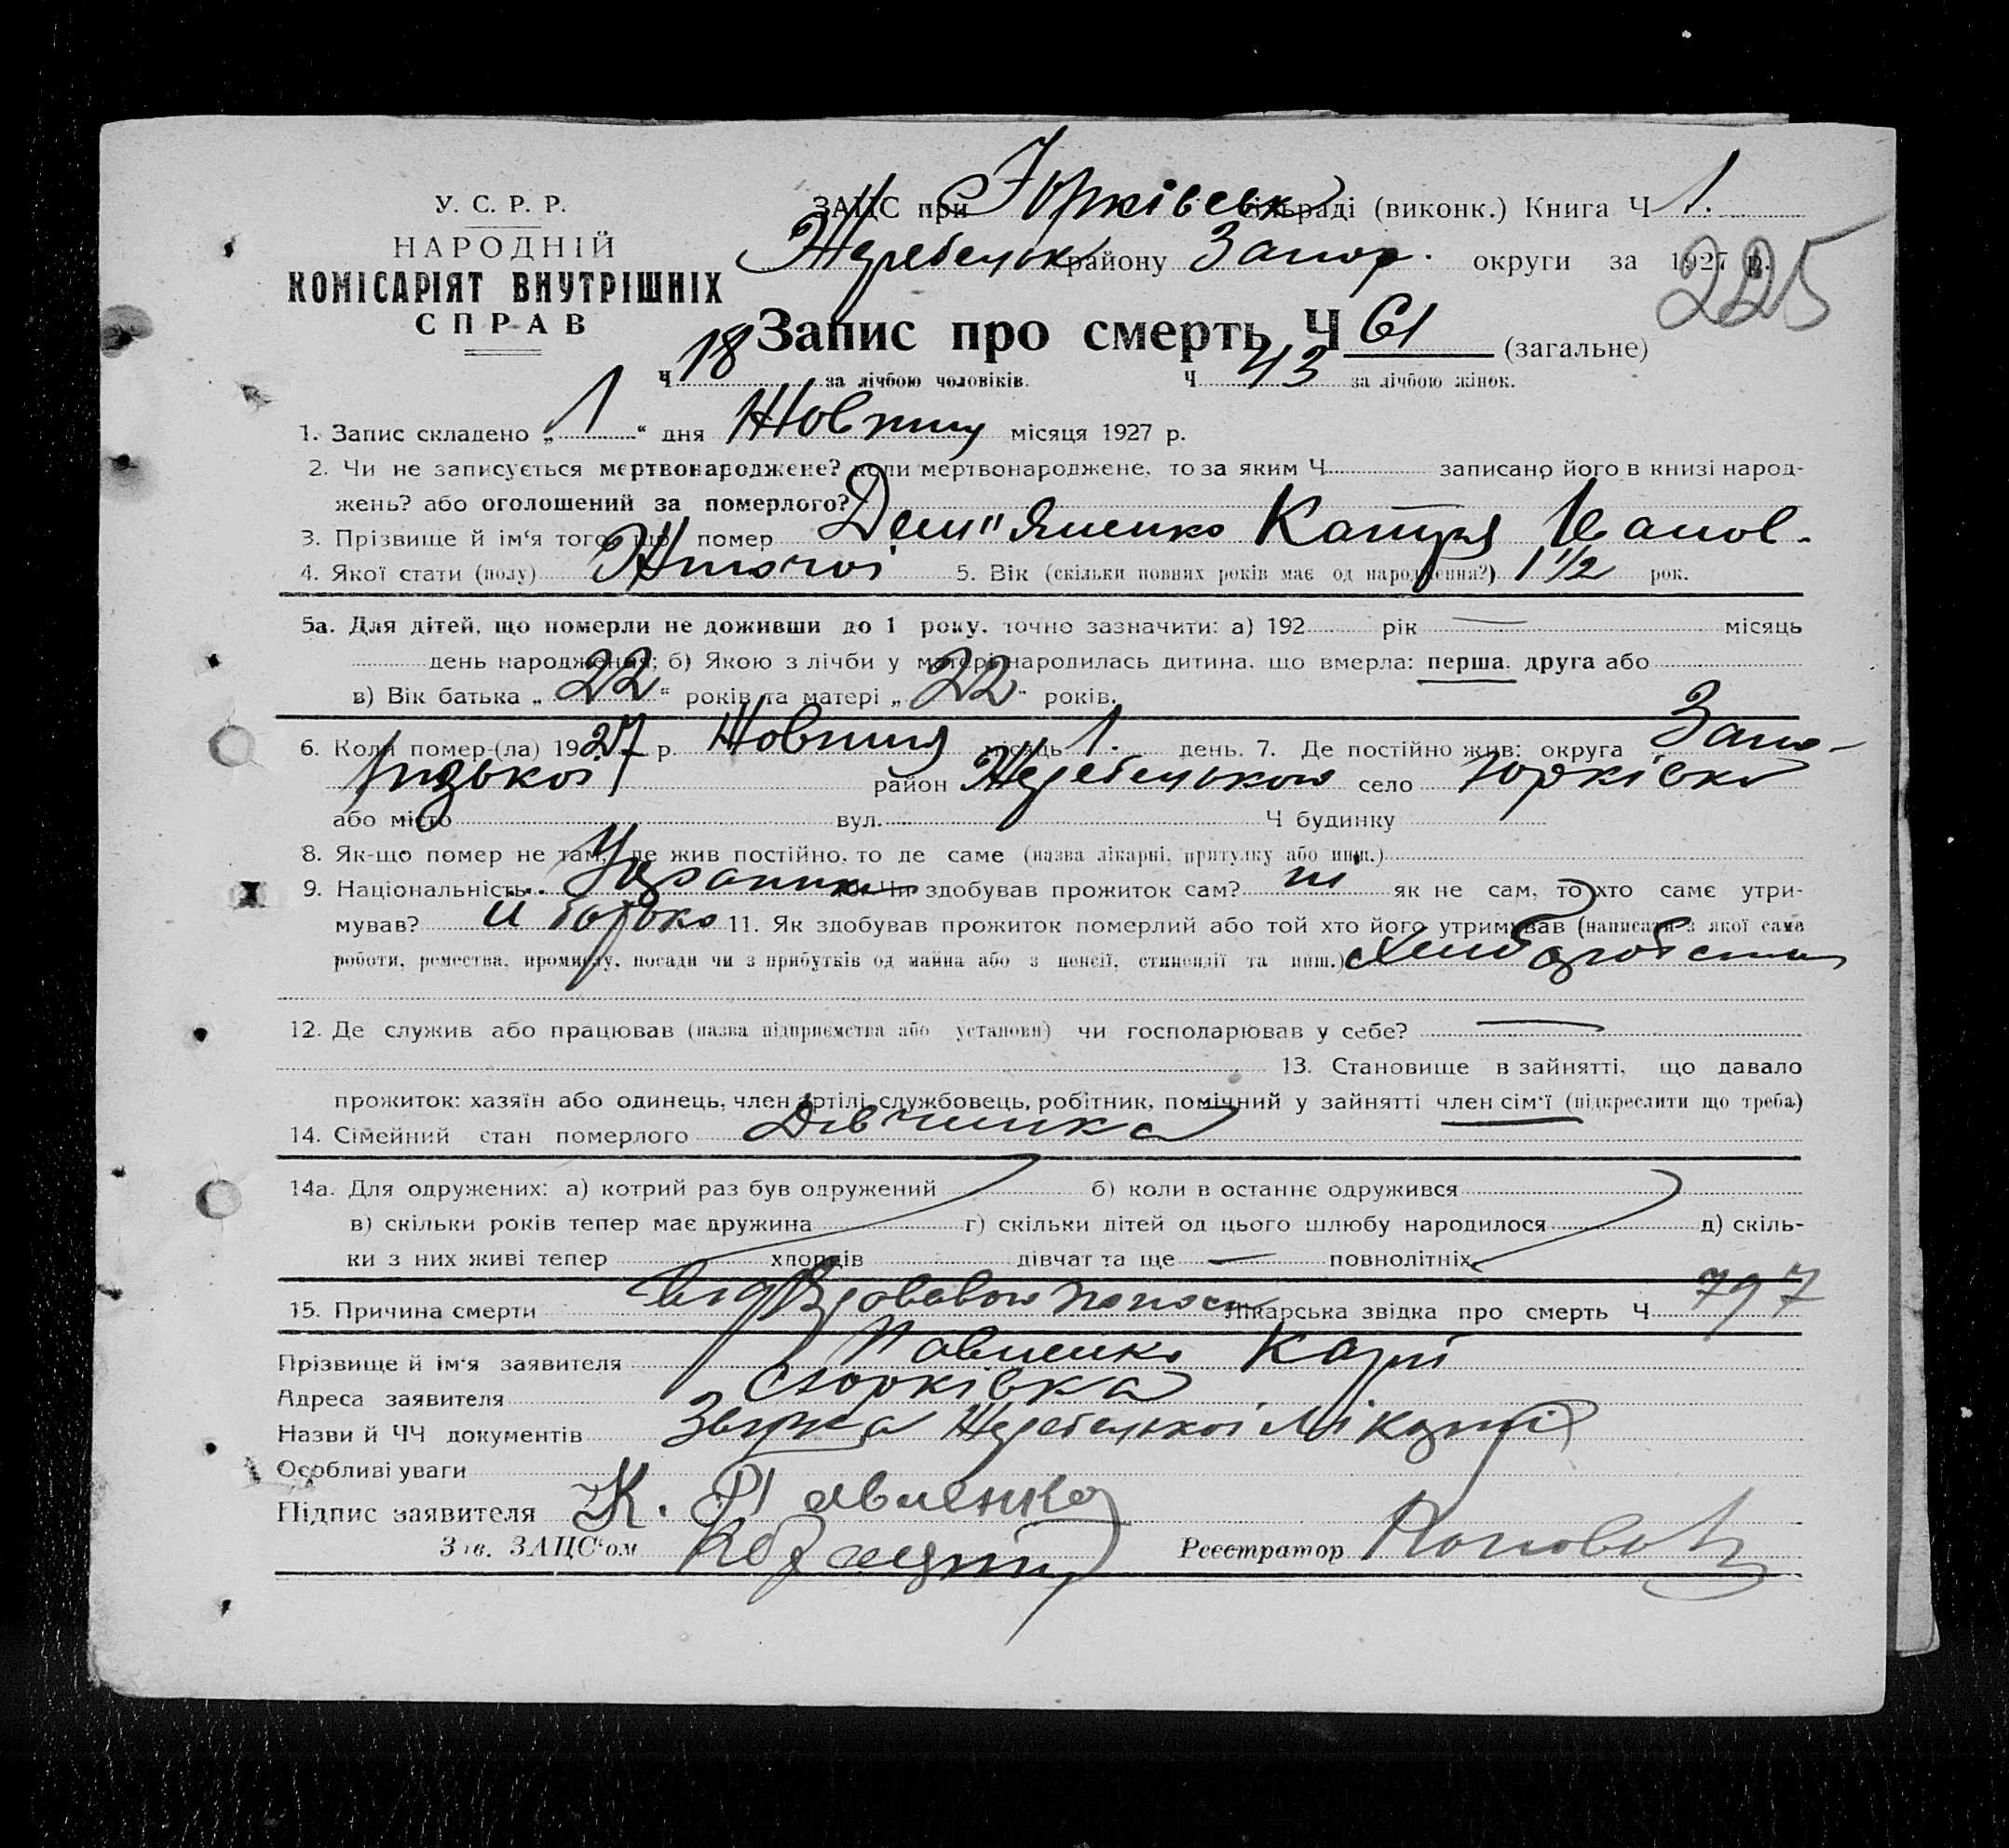 У. С. Р. Р.
НАРОДНІЙ
КОМІСАРІЯТ ВНУТРІШНІХ
СПРАВ
ЗАЦС при Юрківськ сільраді (виконк.) Книга Ч 1.
Жеребецьк району Запор. округи за 1927 р.
225
Запис про смерть Ч 61 (загальне)
Ч 18 за лічбою чоловіків. Ч 43 за лічбою жінок.
1. Запис складено „ 1 “ дня Жовтня місяця 1927 р.
2. Чи не записується мертвонароджене? коли мертвонароджене, то за яким Ч записано його в книзі народ-
жень? або оголошений за померлого?
3. Прізвище й ім‘я того, що помер Дем"яненко Катря Іванов.
4. Якої стати (полу) Жіночої 5. Вік (скільки повних років має од народження?) 1 1/2 рок.
5а. Для дітей, що померли не доживши до 1 року, точно зазначити: а) 192 рік — місяць
день народження; б) Якою з лічби у матері народилась дитина, що вмерла: перша, друга або
в) Вік батька „ 22 “ років та матері „ 22 “ років.
6. Коли помер-(ла) 1927 р. Жовтня місяць 1. день. 7. Де постійно жив: округа Запо-
різької район Жеребецького село Юрківка
або місто вул. Ч будинку
8. Як-що помер не там, де жив постійно, то де саме (назва лікарні, притулку або инш.)
9. Національність Українка Чи здобував прожиток сам? ні як не сам, то хто саме утри-
мував? батько 11. Як здобував прожиток померлий або той хто його утримував (написати з якої саме
роботи, ремества, промислу, посади чи з прибутків од майна або з пенсії, стипендії та инш.) хліборобством
12. Де служив або працював (назва підприємства або установи) чи господарював у себе? —
13. Становище в зайнятті, що давало
прожиток: хазяїн або одинець, член артілі, службовець, робітник, помічний у зайнятті член сім‘ї (підкреслити що треба)
14. Сімейний стан померлого Дівчинка
14а. Для одружених: а) котрий раз був одружений б) коли в останнє одружився
в) скільки років тепер має дружина г) скільки дітей од цього шлюбу народилося д) скіль-
ки з них живі тепер хлопців дівчат та ще — повнолітніх
15. Причина смерти від Лікарська звідка про смерть Ч 797
Прізвище й ім‘я заявителя Павленко
Адреса заявителя с Юрківка
Назви й ЧЧ документів Звідка Жеребецької Лікарні
Особливі уваги
Підпис заявителя К. Павленко
Зав. ЗАЦС‘ом Реєстратор